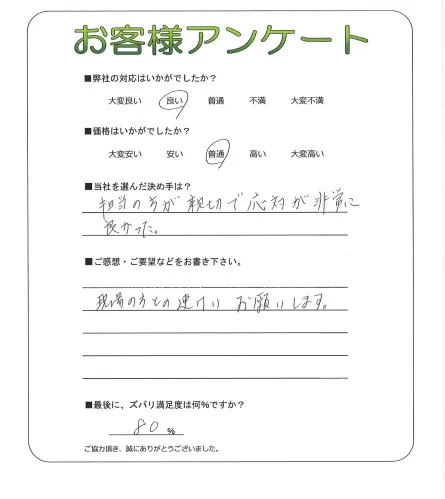 お客様アンケート
■弊社の対応はいかがでしたか？
大変良い 良い 普通 不満 大変不満
■価格はいかがでしたか？
大変安い 安い 普通 高い 大変高い
■当社を選んだ決め手は？
担当の方が親切で応対が非常に
良かった。
■ご感想・ご要望などをお書き下さい。
現場の方との連けい お願いします。
■最後に、ズバリ満足度は何％ですか？
80 ％
ご協力頂き、誠にありがとうございました。